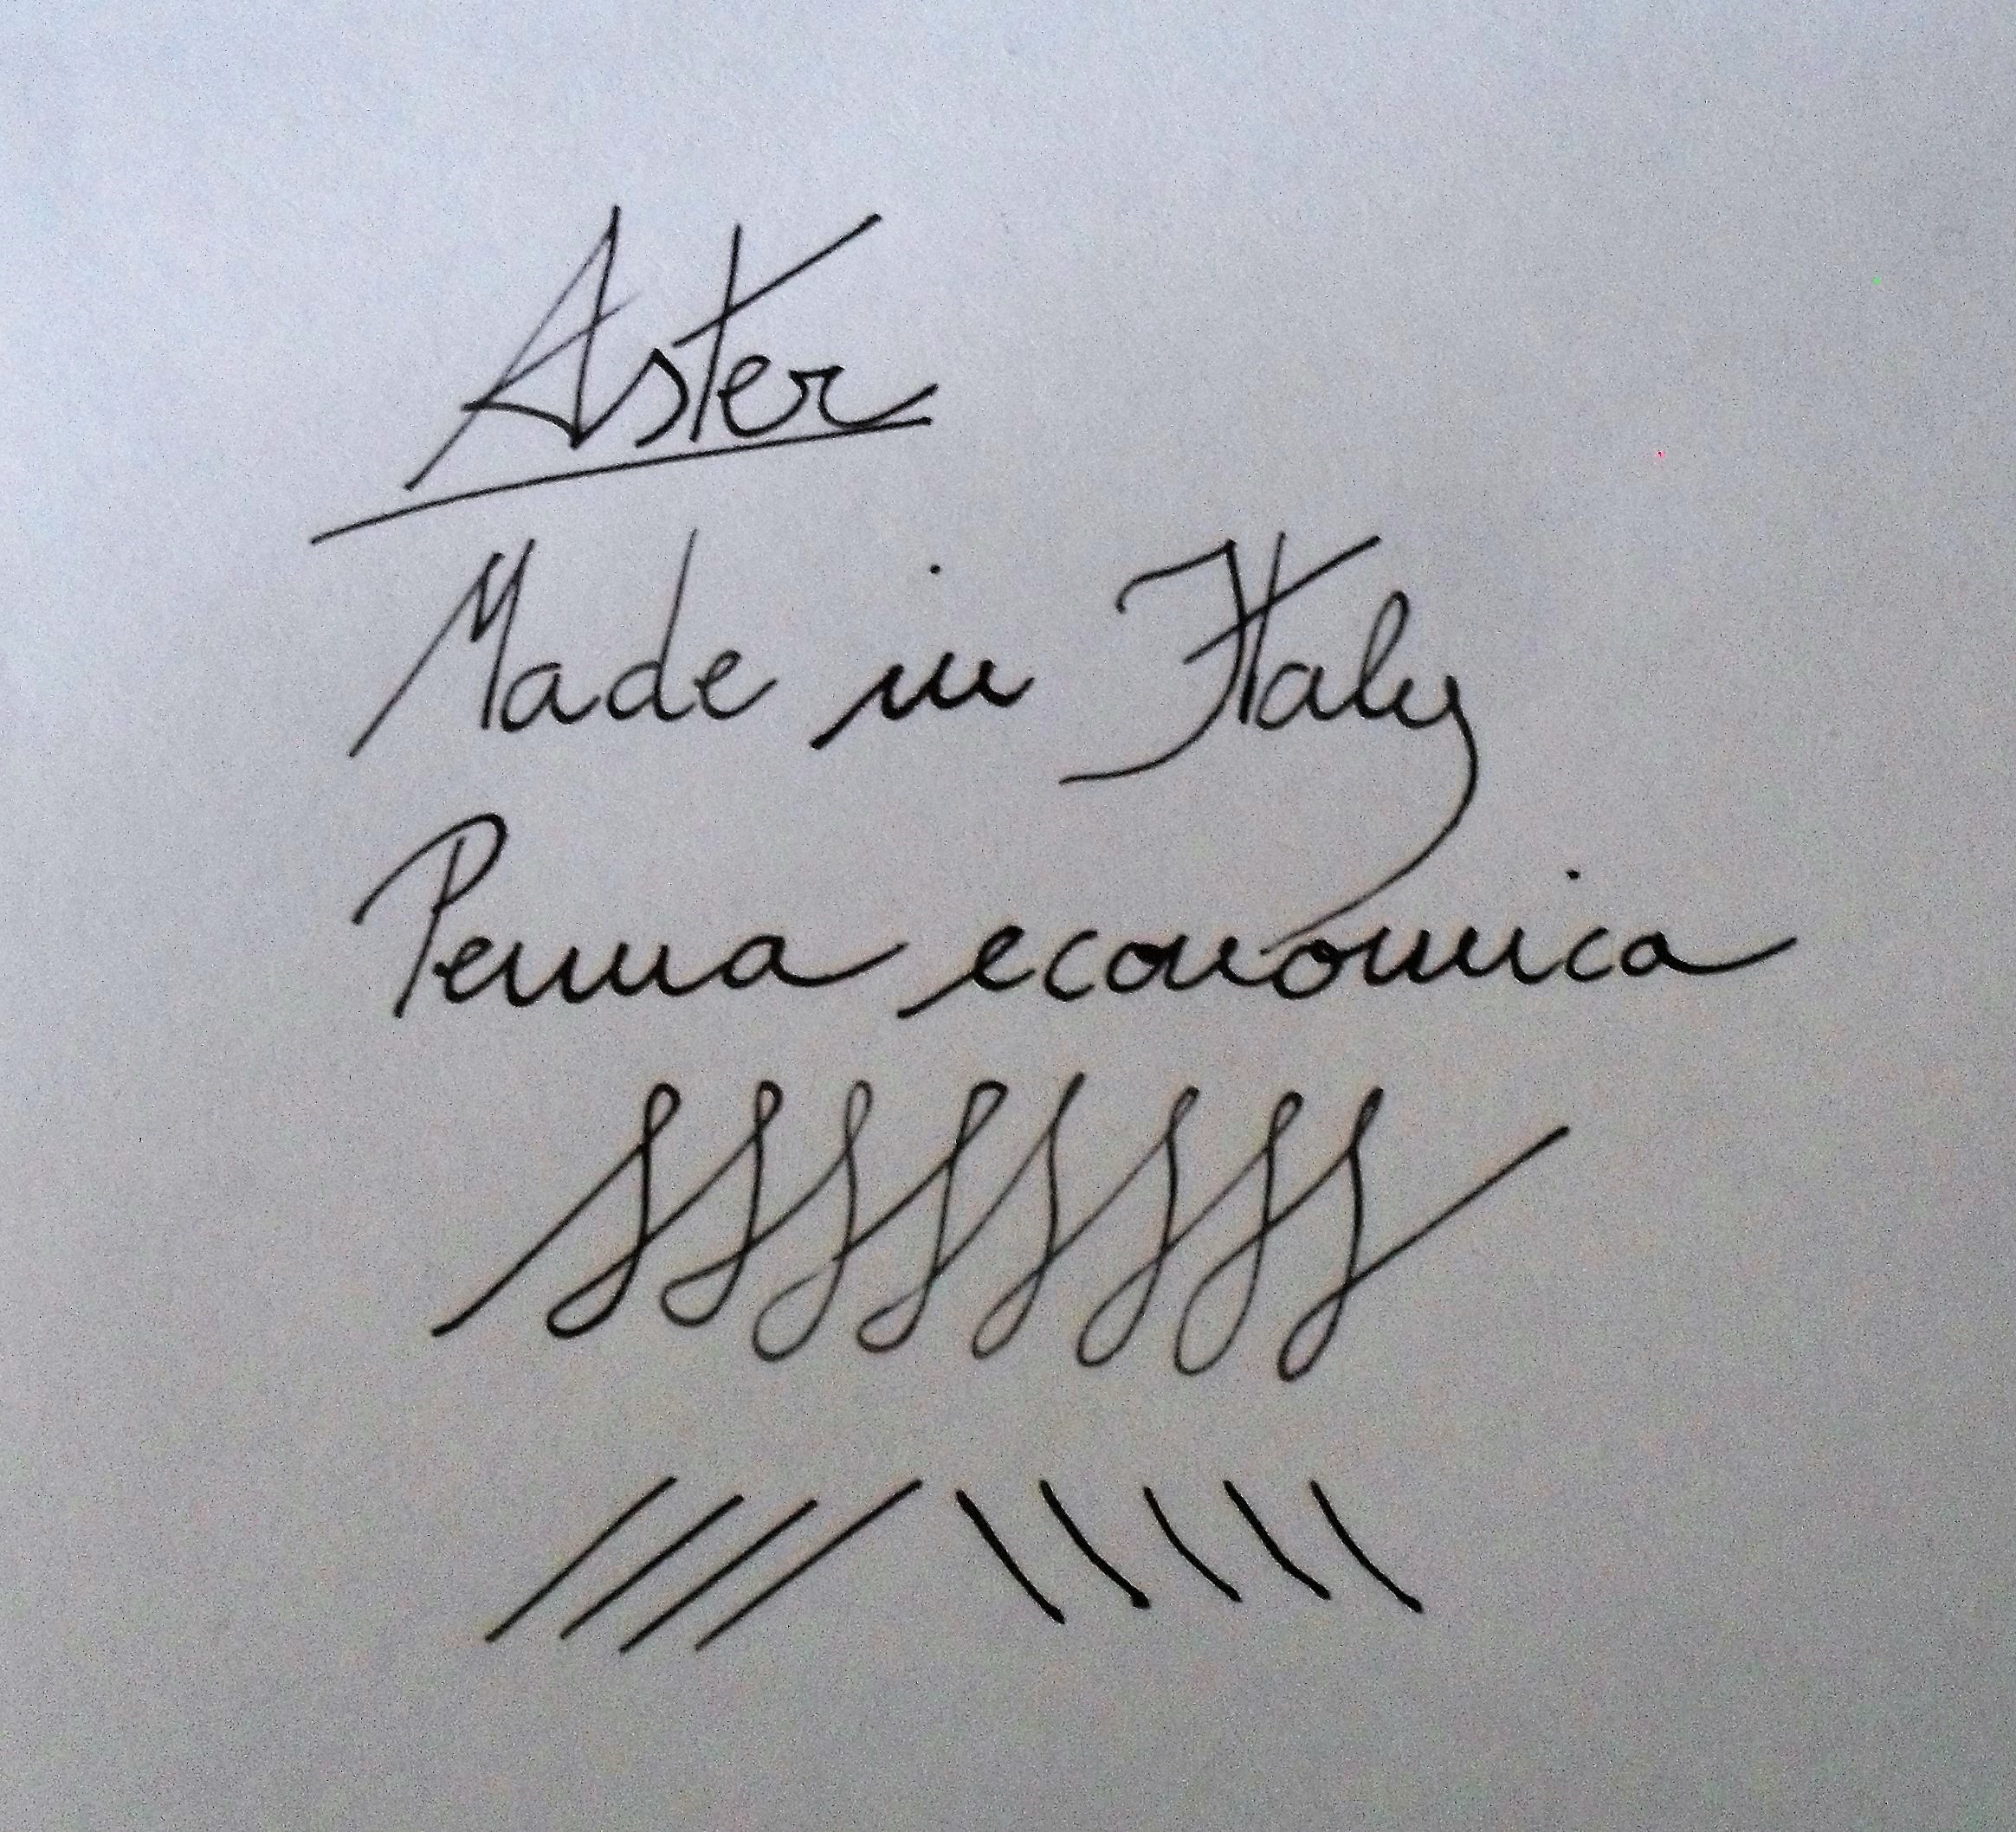 Aster
Made in Italy
Penna economica